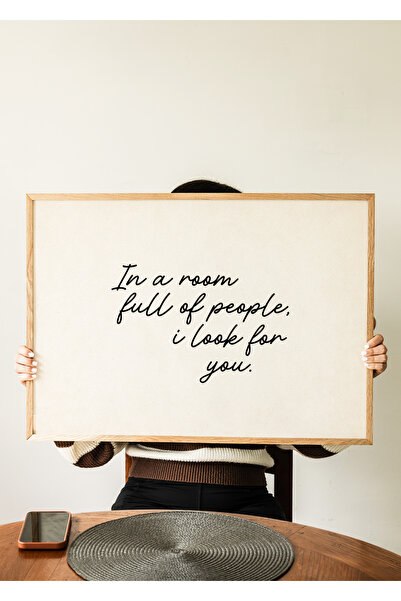 In a room
full of people,
i look for
you.